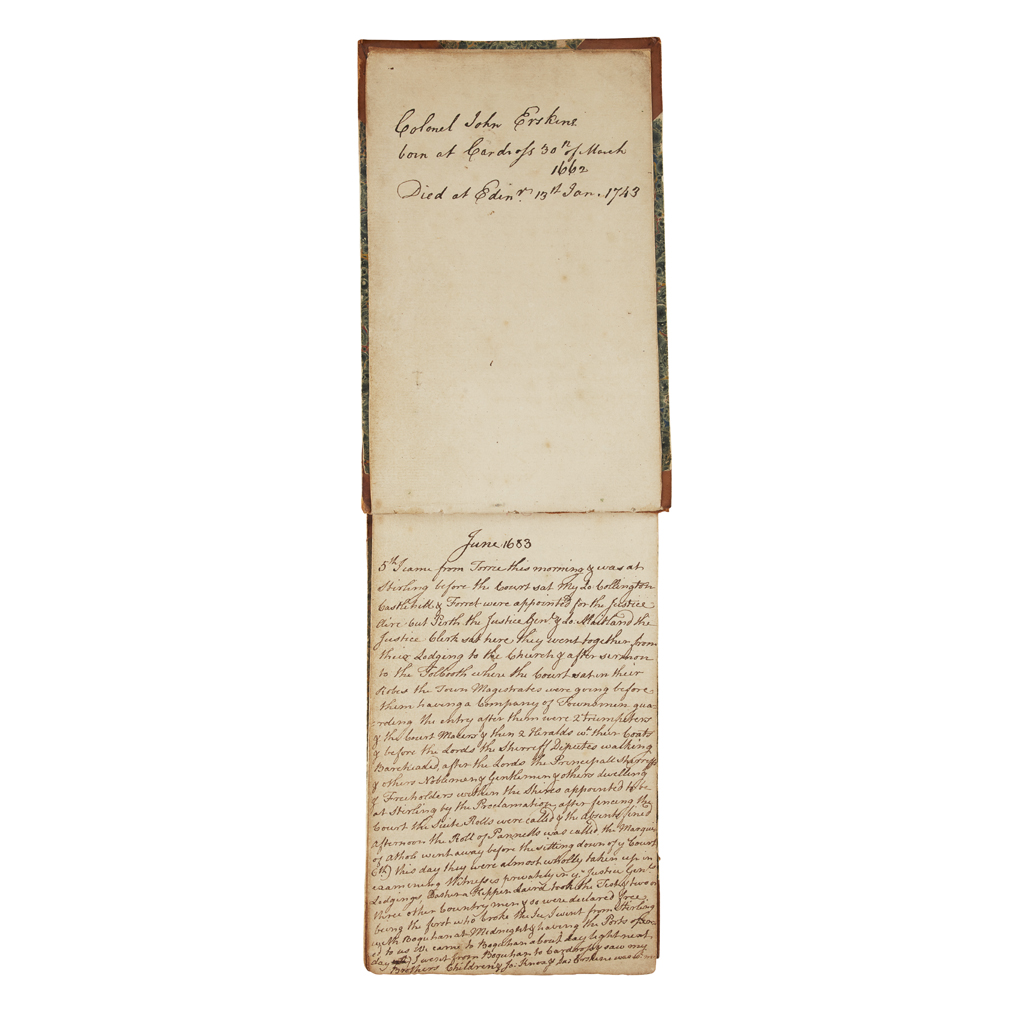 Colonel John Erskine
born at Cardross 30th of March
1662
Died at Edinr. 13th Jan. 1743
June 1683
5th I came from Torrie this morning & was at
Stirling before the Court sat My Lo Collington
Castlehill & Forret were appointed for the Justice
Aire but Perth the Justice Genll & Lo. Maitland the
Justice Clerk sat here they went together from
their Lodging to the Church & after sermon
to the Tolbooth where the Court sat in their
Robes the Town Magistrates were going before
them having a Company of Townsmen gua-
-rding the entry after them were 2 Trumpeters
& the Court Macers & then 2 Heralds wt their Coats
& before the Lords the Sherreff Deputes walking
Bareheaded, after the Lords the Principall Sherreffs
& others Noblemen & Gentlemen & others dwelling
& Freeholders within the Shires appointed to be
at Stirling by the Proclamation, after fencing the
Court the Suite Rolls were called & the absents fined
afternoon the Roll of Pannells was called, the Marquis
of Athole went away before the sitting down of y Court
6th) this day they were almost wholly taken up in
examening Witnesses privately in ye Justice Genls
Lodgings, Kippen Laird took the Test & two or
three other Country men & so were declared free
being the first who broke the Ice, I went from Stirling
with Boquhan at Midnight & having the Ports open
ed to us We came to Boquhan about day light next
day I went from Boquhan to Cardross & saw my
Brothers Children & Ja: Knox & Erskine was